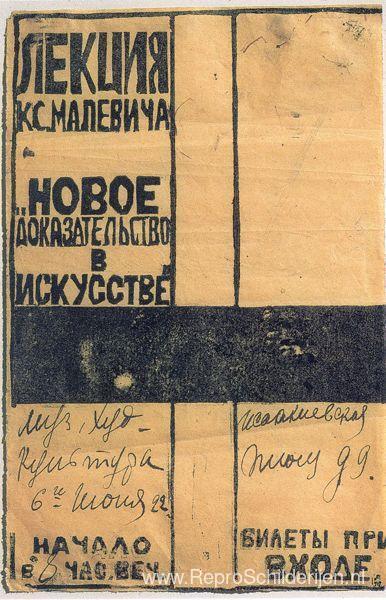 ЛЕКЦИЯ
К.С.МАЛЕВИЧА
„НОВОЕ
ДОКАЗАТЕЛЬСТВО
В
ИСКУССТВЕ"
Муз. Худ.
Культура
6го Июня 22.
Исаакиевская
9.
НАЧАЛО
В 8 ЧАС. ВЕЧ.
БИЛЕТЫ ПРИ
ВХОДЕ.
www.ReproSchilderijen.nl